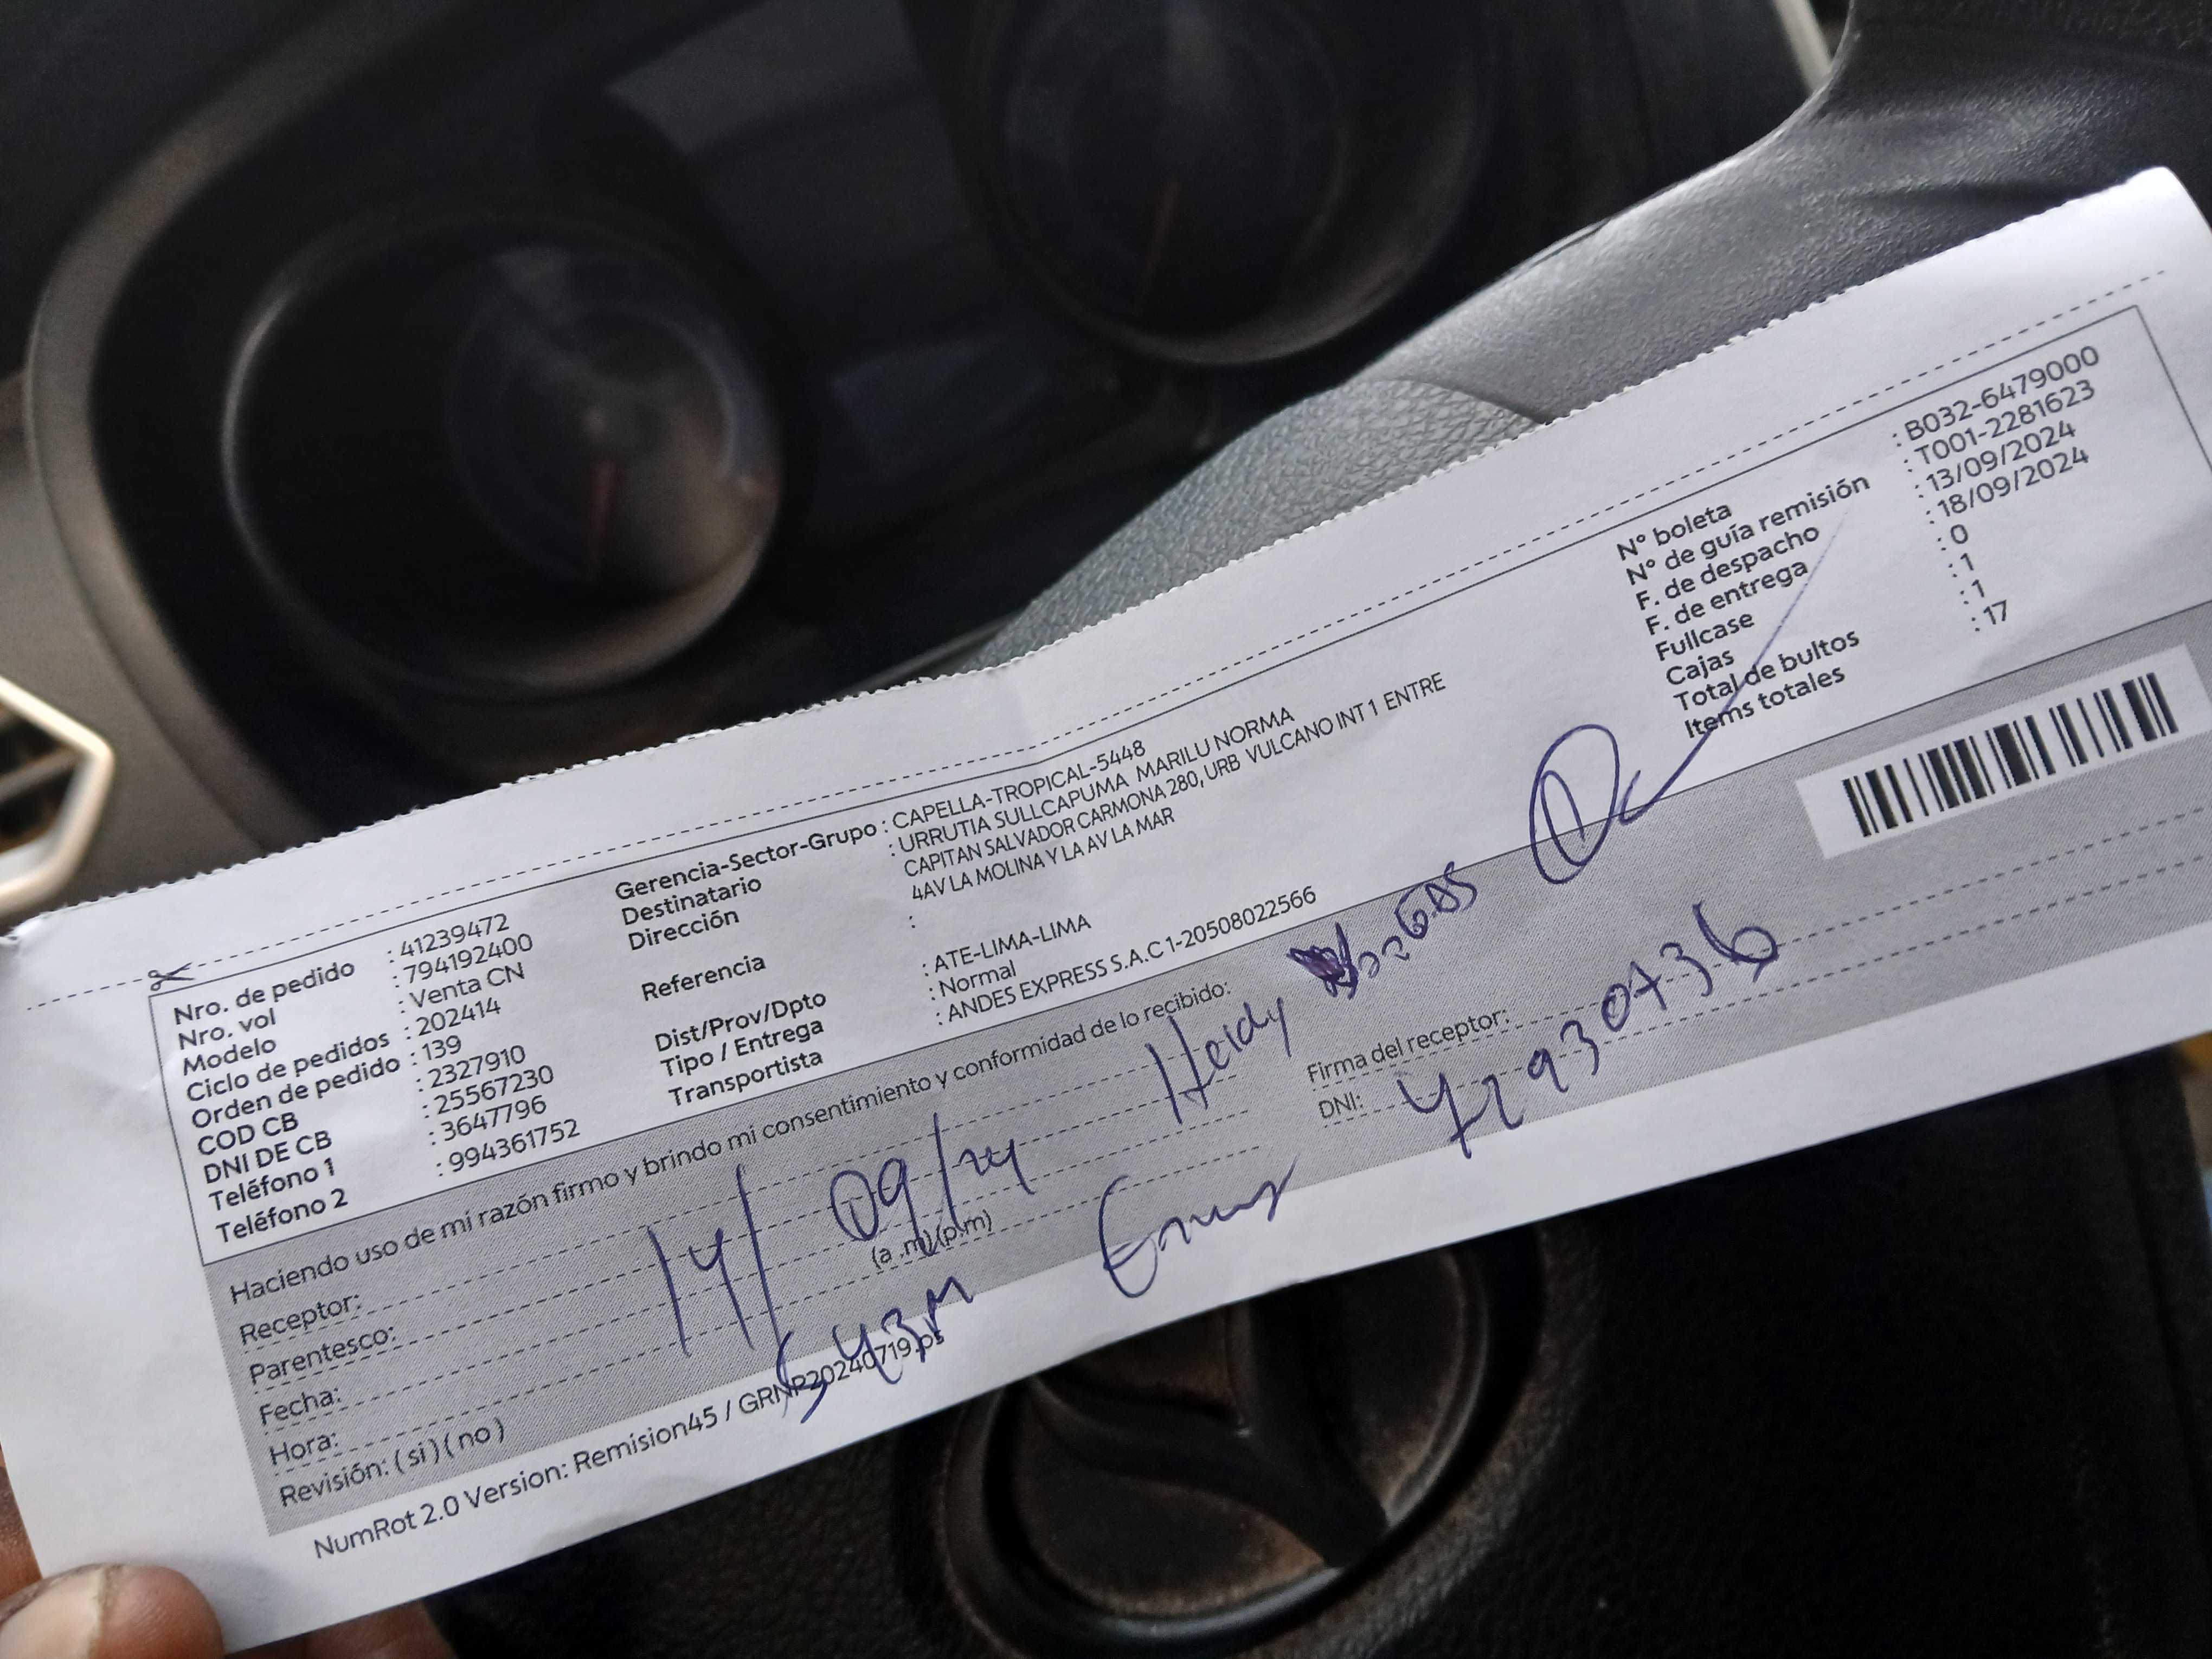 Nro. de pedido : 41239472
Nro. vol : 794192400
Modelo : Venta CN
Ciclo de pedidos : 202414
Orden de pedido : 139
COD CB : 2327910
DNI DE CB : 25567230
Teléfono 1 : 3647796
Teléfono 2 : 994361752
Gerencia-Sector-Grupo : CAPELLA-TROPICAL-5448
Destinatario : URRUTIA SULLCAPUMA MARILU NORMA
Dirección CAPITAN SALVADOR CARMONA 280, URB VULCANO INT 1 ENTRE
4AV LA MOLINA Y LA AV LA MAR
Referencia :
Dist/Prov/Dpto : ATE-LIMA-LIMA
Tipo / Entrega : Normal
Transportista : ANDES EXPRESS S.A.C 1-20508022566
N° boleta : B032-6479000
N° de guía remisión : T001-2281623
F. de despacho : 13/09/2024
F. de entrega : 18/09/2024
Fullcase : 0
Cajas : 1
Total de bultos : 1
Items totales : 17
Haciendo uso de mi razón firmo y brindo mi consentimiento y conformidad de lo recibido:
Receptor: Heidy
Parentesco:
Fecha: 14/09/24
Hora: (a .m) (p.m)
Revisión: ( si ) ( no )
Firma del receptor:
DNI:
NumRot 2.0 Version: Remision45 / GRNP20240719.ps